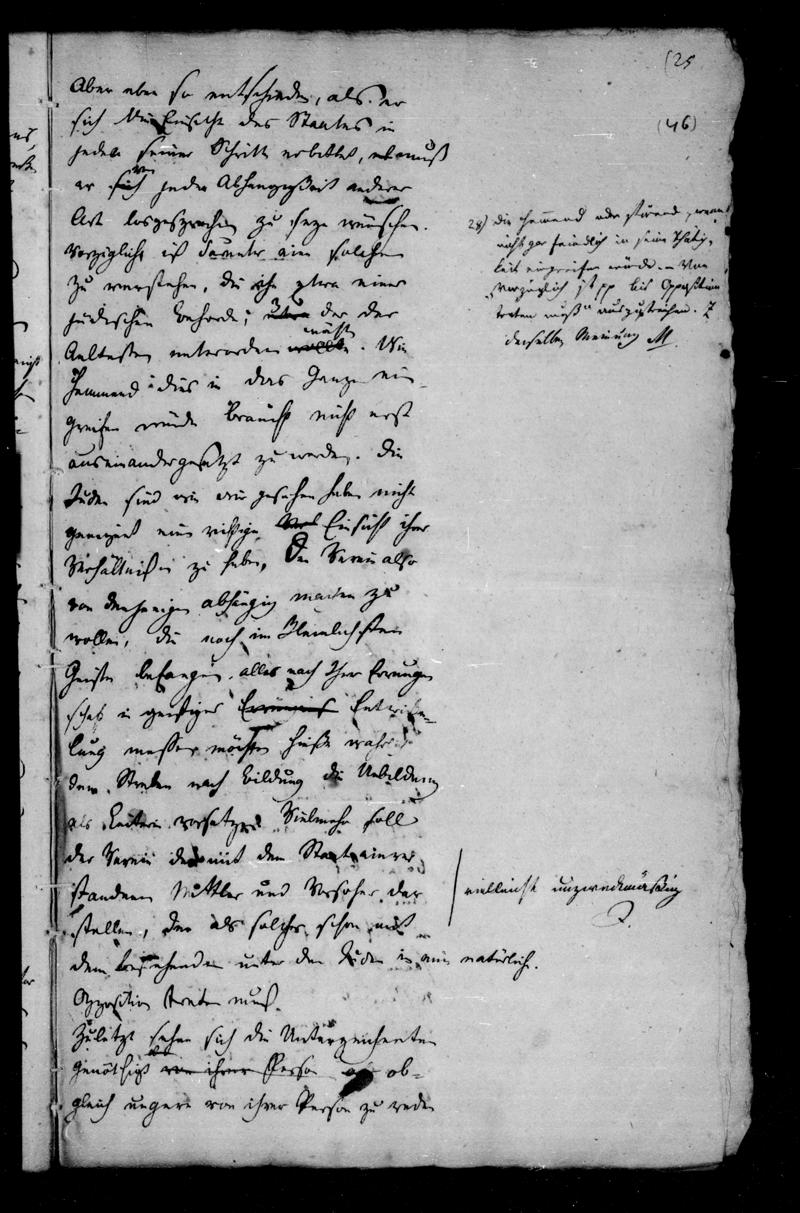 (25
(46)
Aber eben so entschieden, als er
sich die Einsicht des Staates in
jeden seiner Schritte erbittet, eben muß
er sich von jeder Abhangigkeit anderer
Art losgesprochen zu seyn wünschen.
Vorzüglich ist darunter eine solche
zu verstehen, die ihn etwa einer
jüdischen Behörde, oder der
Aeltesten unterordnen müßte. Wie
hemmend dies in das Ganze ein-
greifen würde braucht nicht erst
auseinandergesetzt zu werden. Die
Juden sind wie wir gesehen haben nicht
geeignet eine richtige Einsicht ihrer
Verhältniße zu haben, Den Verein also
von denjenigen abhängig machen zu
wollen, die noch im
Geiste befangen, alles nach ihrer Errungen
schaft in geistiges Entwicke-
lung messen möchten hieße
dem Streben nach Bildung die Unbildung
als Leiterin vorsetzen. Vielmehr soll
der Verein den mit dem Staat einver
standenen Mittler und Versöhner dar
stellen, der als solcher schon mit
dem Bestehenden unter den Juden in eine natürliche
Opposition treten muß.
Zuletzt sehen sich die Unterzeichneten
genöthigt von ihrer Person ob-
gleich ungern von ihrer Person zu reden
28) die hemmend oder störend, wenn
nicht gar feindlich in seine Thätig-
keit eingreifen würde. – Von
"Vorzüglich ist pp bis Opposition
treten muß" auszustreichen. Z
derselben Meinung M
vielleicht unzweckmässig